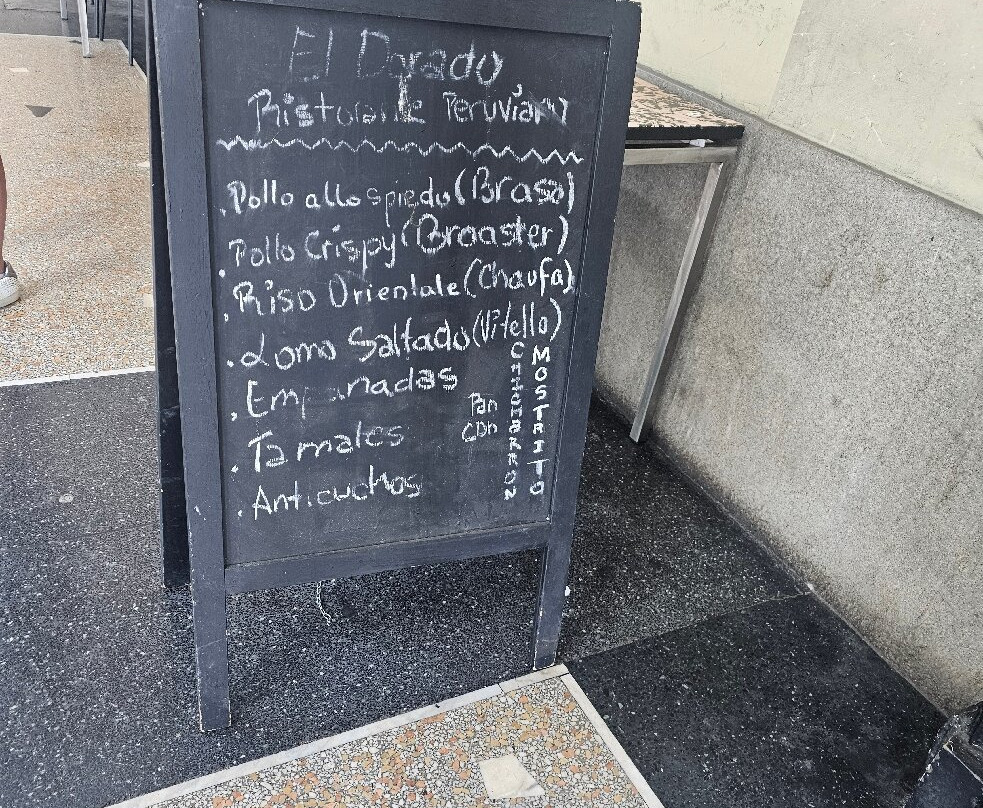 El Dorado
Ristorante Peruviano
. Pollo allo spiedo (Braso)
. Pollo Crispy (Broaster)
. Riso Orientale (Chaufa)
. Lomo Saltado (Vitello)
. Empanadas
. Tamales
. Anticuchos
Pan
con
CHICHARRON
MOSTRITO